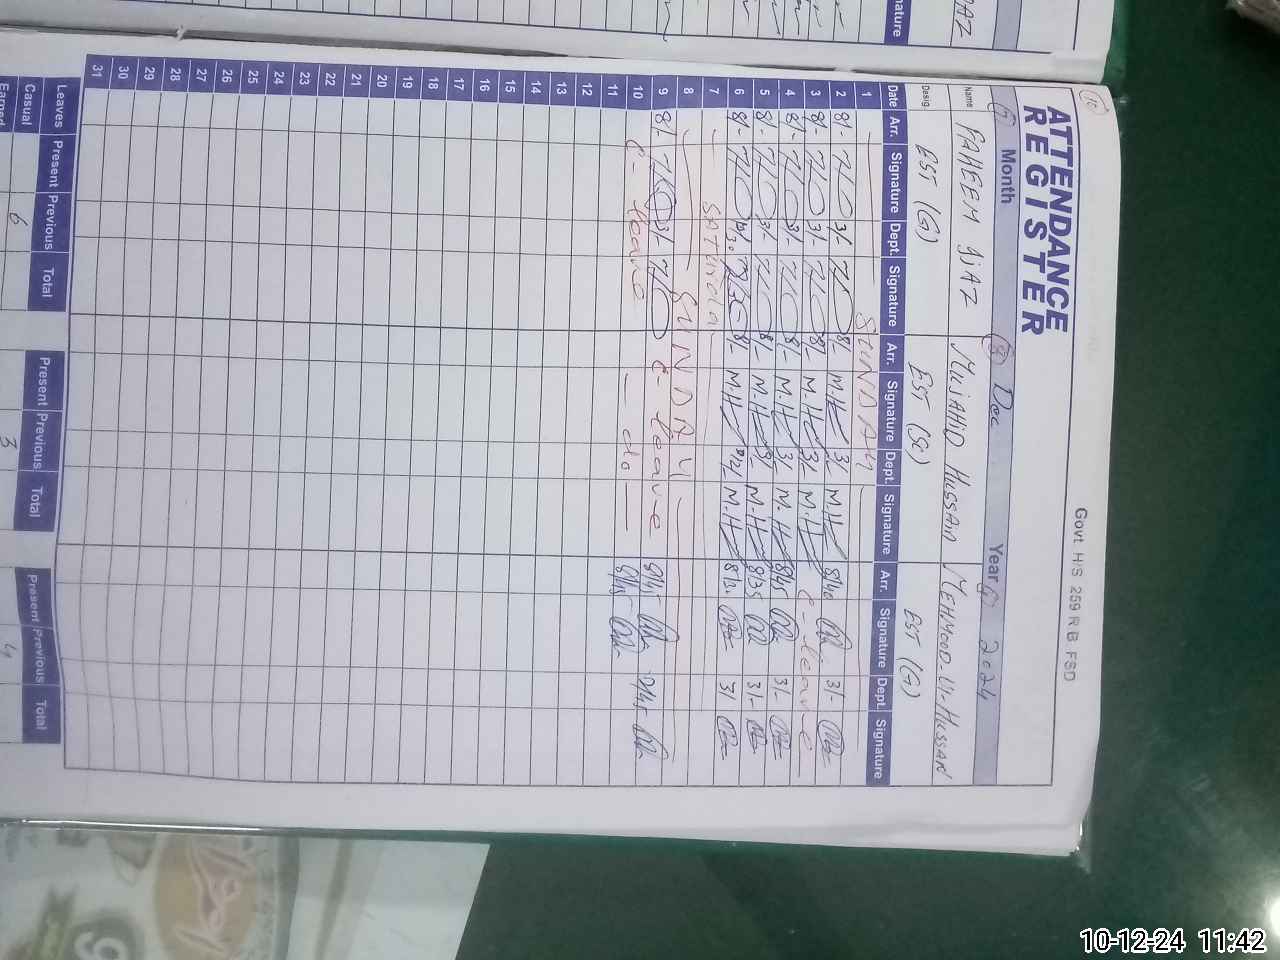 Govt H/S 259 R B FSD
ATTENDANCE
REGISTER
Month Dec Year 2024
Name FAHEEM IJAZ MUJAHID HUSSAIN MEHMOOD-UL-HASSAN
Desig. EST (G) EST (Sc) EST (G)
Date Arr. Signature Dept. Signature Arr. Signature Dept. Signature Arr. Signature Dept. Signature
1 SUNDAY
2 8/- 3/- 8/- M.H 3/- M.H 8/40 3/-
3 8/- 3/- 8/- M.H 3/- M.H C-leave
4 8/- 3/- 8/- M.H 3/- M.H 8/45 3/-
5 8/- 3/- 8/- M.H 3/- M.H 8/35 3/-
6 8/- 8/- M.H M.H 8/20 3/-
7
8 SUNDAY
9 8/- 3/- C-leave
10 C-leave do
11
12
13
14
15
16
17
18
19
20
21
22
23
24
25
26
27
28
29
30
31
Leaves Present Previous Total Present Previous Total Present Previous Total
Casual 6 3 4
Earned
10-12-24 11:42